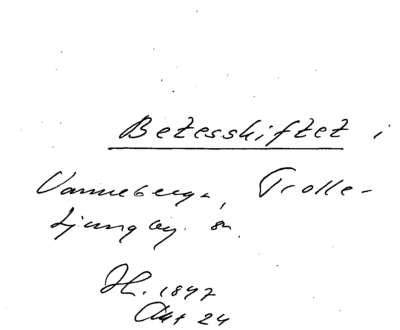 Betesskiftet i
Vanneberga, Trolle-
Ljungby. sn.
Hl. 1897
Akt 24